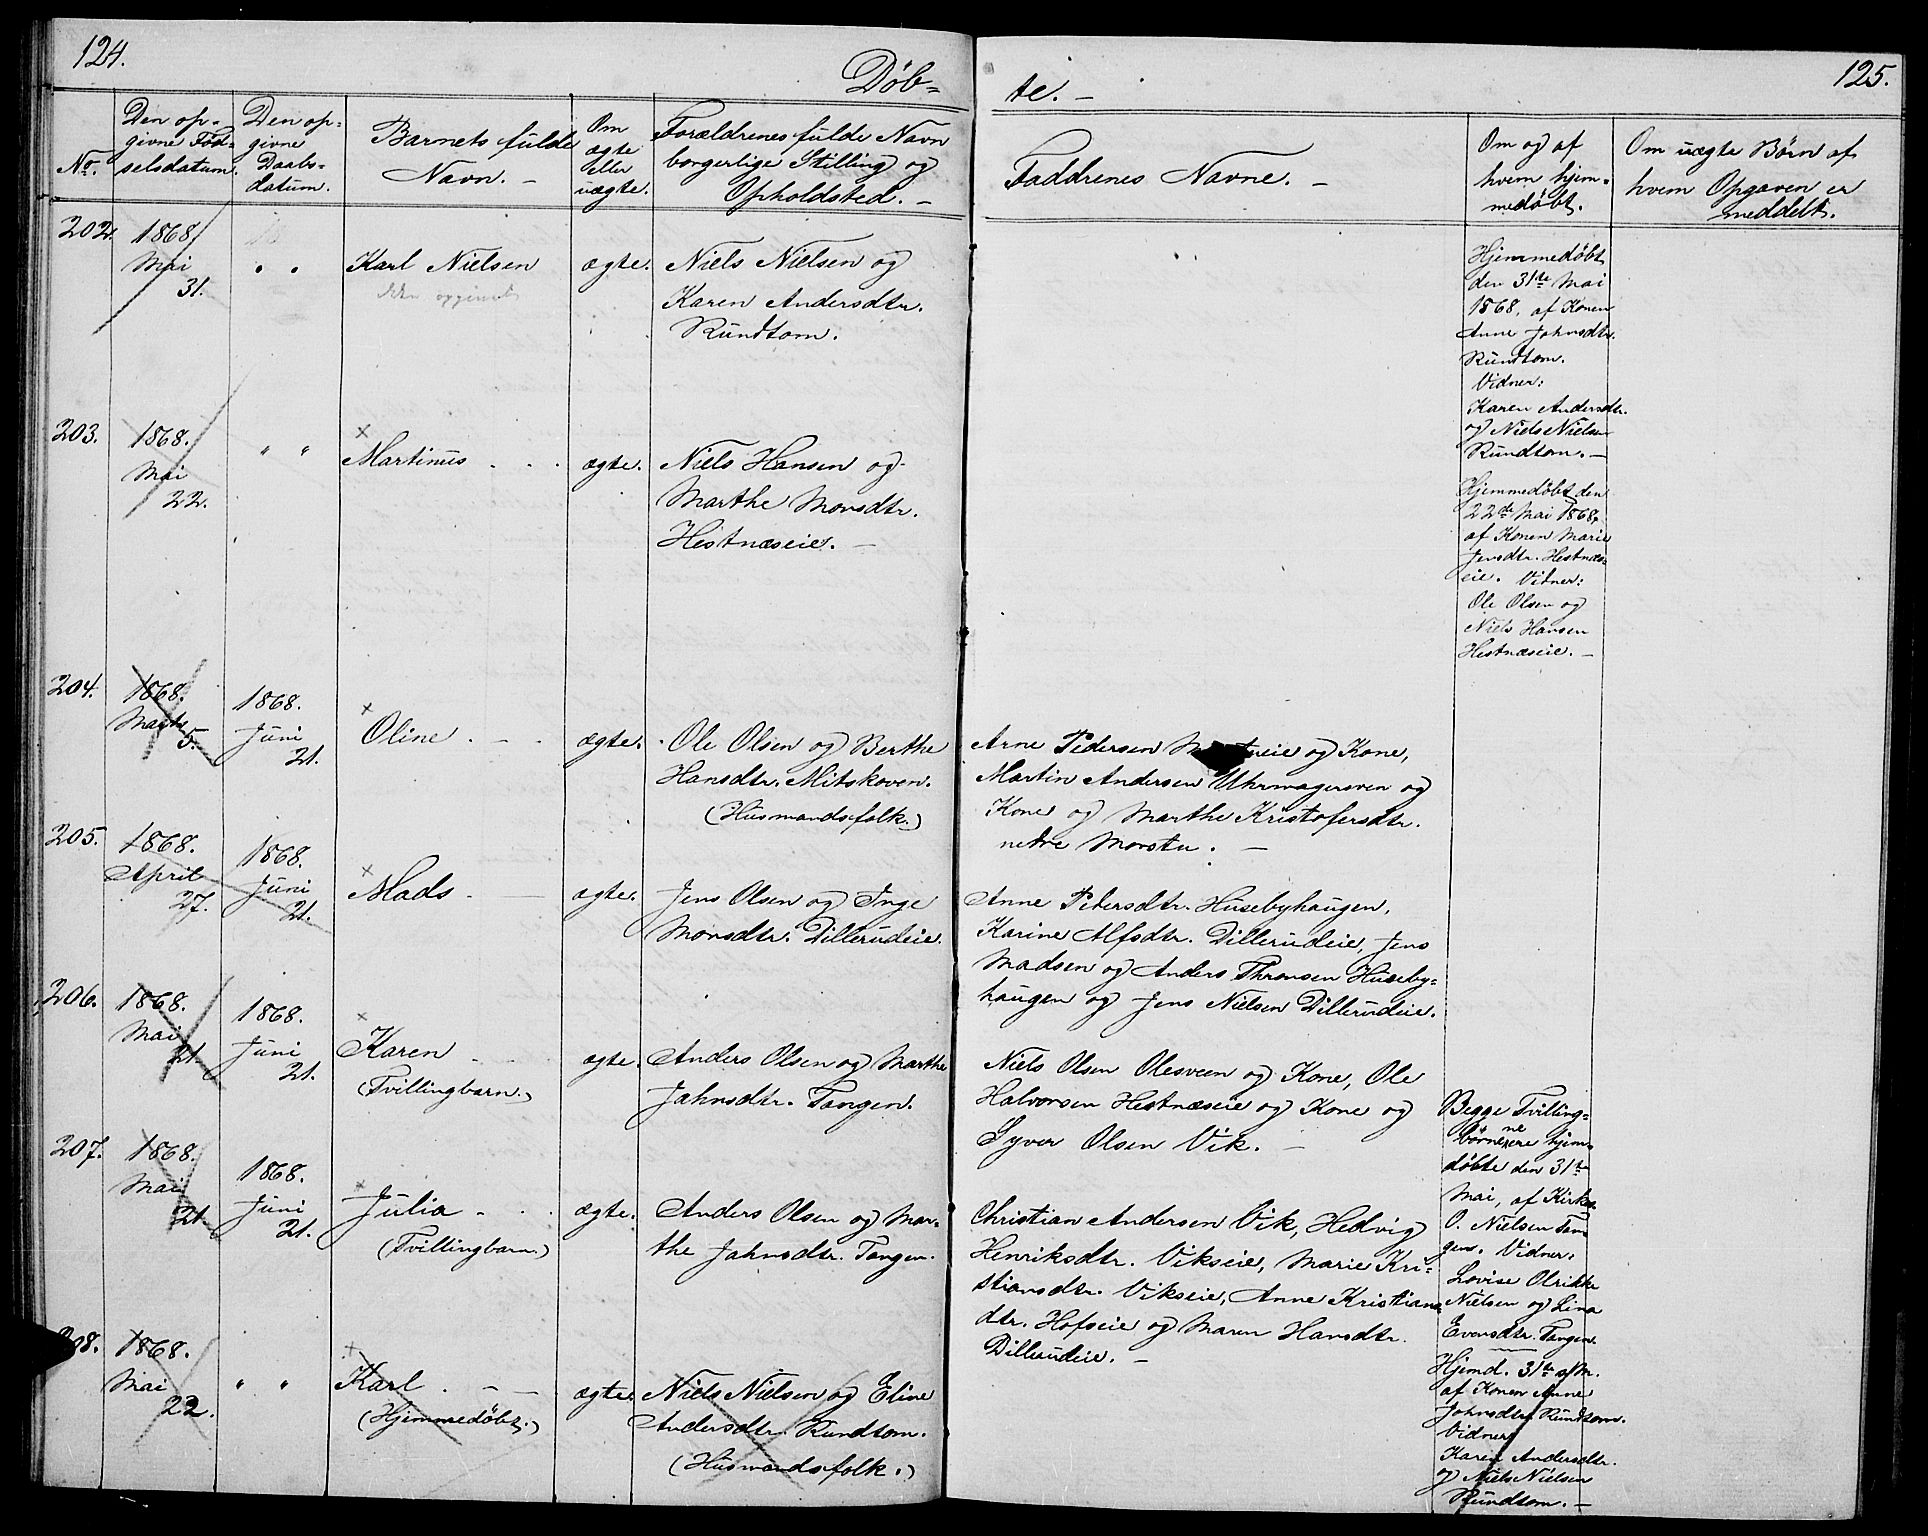 124.
Døb-
No.
Den op-
givne Fød-
selsdatum.
Den op-
givne
Daabs-
datum.
Barnets fulde
Navn. -
Om
ægte
eller
uægte.
Forældrenes fulde Navn
borgerlige Stilling og
Opholdsted. -
202.
1868.
Mai
31.
" "
Karl Nielsen
ægte.
Niels Nielsen og
Karen Andersdtr.
Rundtom.
203.
1868.
Mai
22.
" "
x
Martinus . . .
ægte.
Niels Hansen og
Marthe Monsdtr.
Hestnæseie. -
204.
1868.
Marts
5.
1868.
Juni
21.
x
Oline . - .
ægte.
Ole Olsen og Berthe
Hansdtr. Mitskoven.
(Husmandsfolk.)
205.
1868.
April
27.
1868.
Juni
21.
x
Mads . -
ægte.
Jens Olsen og Inge
Monsdtr. Dillerudeie.
206.
1868.
Mai
21.
1868.
Juni
21.
x
Karen . .
(Tvillingbarn.)
ægte.
Anders Olsen og Marthe
Jahnsdtr. Tangen.
207.
1868.
Mai
21.
1868.
Juni
21.
x
Julia . . .
(Tvillingbarn.)
ægte.
Anders Olsen og Mar-
the Jahnsdtr. Tangen.
208.
1868.
Mai
22.
" "
x
Karl . - -
(Hjemmedøbt.)
ægte.
Niels Nielsen og Eline
Andersdtr. Rundtom.
(Husmandsfolk.)
125.
te. -
Faddrenes Navne. -
Om og af
hvem hjem-
medøbt.
Om uægte Børn af
hvem Opgaven er
meddelt.
Hjemmedøbt
den 31te Mai
1868, af Konen
Anne Jahnsdtr.
Rundtom.
Vidner:
Karen Andersdtr.
og Niels Nielsen
Rundtom. -
Hjemmedøbt den
22de Mai 1868,
af Konen Marie
Jensdtr. Hestnæs-
eie. Vidner:
Ole Olsen og
Niels Hansen
Hestnæseie. -
Arne Pedersen og Kone,
Martin Andersen Uhrmagersven og
Kone og Marthe Kristofersdtr.
nedre Morstu. -
Anne Petersdtr. Husebyhaugen,
Karine Alfsdtr. Dillerudeie, Jens
Madsen og Anders Thronsen Huseby-
haugen og Jens Nielsen Dillerudeie.
Niels Olsen Olesveen og Kone, Ole
Halvorsen Hestnæseie og Kone og
Syver Olsen Vik. -
Christian Andersen Vik, Hedvig
Henriksdtr. Vikseie, Marie Kri-
stiansdtr. Vikseie, Anne Kristians
dtr. Hofseie og Maren Hansdtr.
Dillerudeie. -
Begge Tvilling-
børnene ere hjem-
døbte den 31te
Mai, af Kirkes.
O. Nielsen Tan
gen. Vidner:
Lovise Olrikke
Nielsen og Lina
Evensdtr. Tangen.
Hjemd. 31te s. M.
af Konen Anne
Jahnsdtr. Rundtom.
Vidner:
Karen Andersdtr.
og Niels Nielsen
Rundtom. -